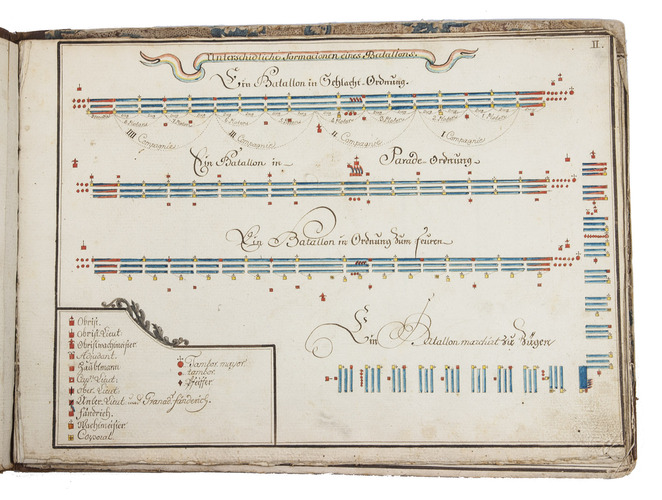 II.
Unterschidliche Formacionen eines Batallons.
Ein Batallon in Schlacht-Ordnung.
IIII Compagnie
III Compagnie
II Compagnie
I Compagnie
Ein Batallon in Parade Ordnung
Ein Batallon in Ordnung zum feuren
Ein Batallon marchirt zu Zügen
Obrist.
Obrist Lieut
Obristwachmeister
Adjudant.
Haubtmann
Lieut.
ober Lieut
Unter Lieut und Granad: fänderich.
fändrich.
Wachtmeister
Corporal.
Tambor major
tambor.
Pfeiffer